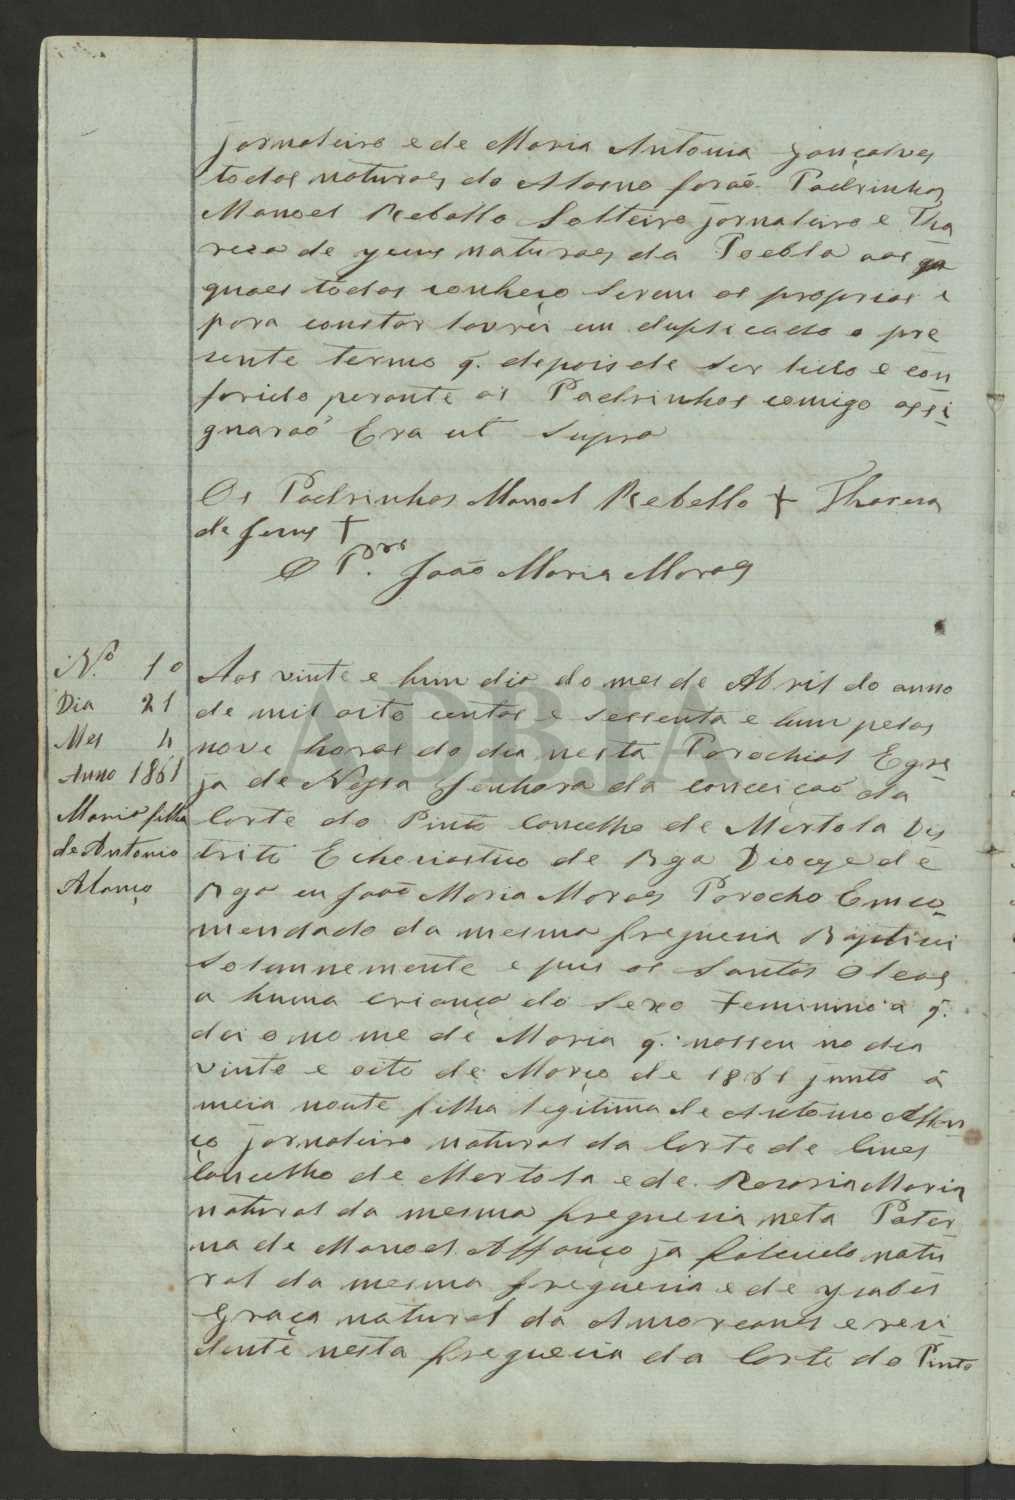 jornaleiro e de Maria Antonia Gonçalves
todos naturaes do Alosno forão Padrinhos
Manoel Rebollo Solteiro jornaleiro e Tha
reza de yezus naturaes da Poebla aos
quaes todos conheço serem os proprios e
para constar lavrei em duplicado o pre
sente termo q. depois de ser lido e con
forido perante os Padrinhos comigo assi
gnaraõ Era ut supra
Os Padrinhos Manoel Rebello + Thareza
de Jezus +
O P.ro João Maria Moraes
N.º 10
Dia 21
Mes 4
Anno 1861
Maria filha
de Antonio
Afonço
Aos vinte e hum dia do mes de Abril do anno
de mil oito centos e sessenta e hum pelas
nove horas do dia nesta Parochial Egre
ja de Nossa Senhora da conceiçaõ da
Corte do Pinto Concelho de Mertola Dis
trito Ecleziastico de Bga Dioceze de
Bga eu João Maria Moraes Parocho Emco
mendado da mesma freguezia Baptizei
solemnemente e pus os Santos Oleos
a huma criança do sexo Feminino a q.
dei o nome de Maria q. nasceu no dia
vinte e oito de Março de 1861 junto á
meia noute filha legitima de Antonio Affon
ço jornaleiro natural da Corte de Cines
Concelho de Mertola e de Rozaria Maria
natural da mesma freguezia neta Pater
na de Manoel Affonço ja falecido natu
ral da mesma freguezia e de yzabel
Graça natural do Amoreanes e rezi
dente nesta freguezia da Corte do Pinto
ADBJA